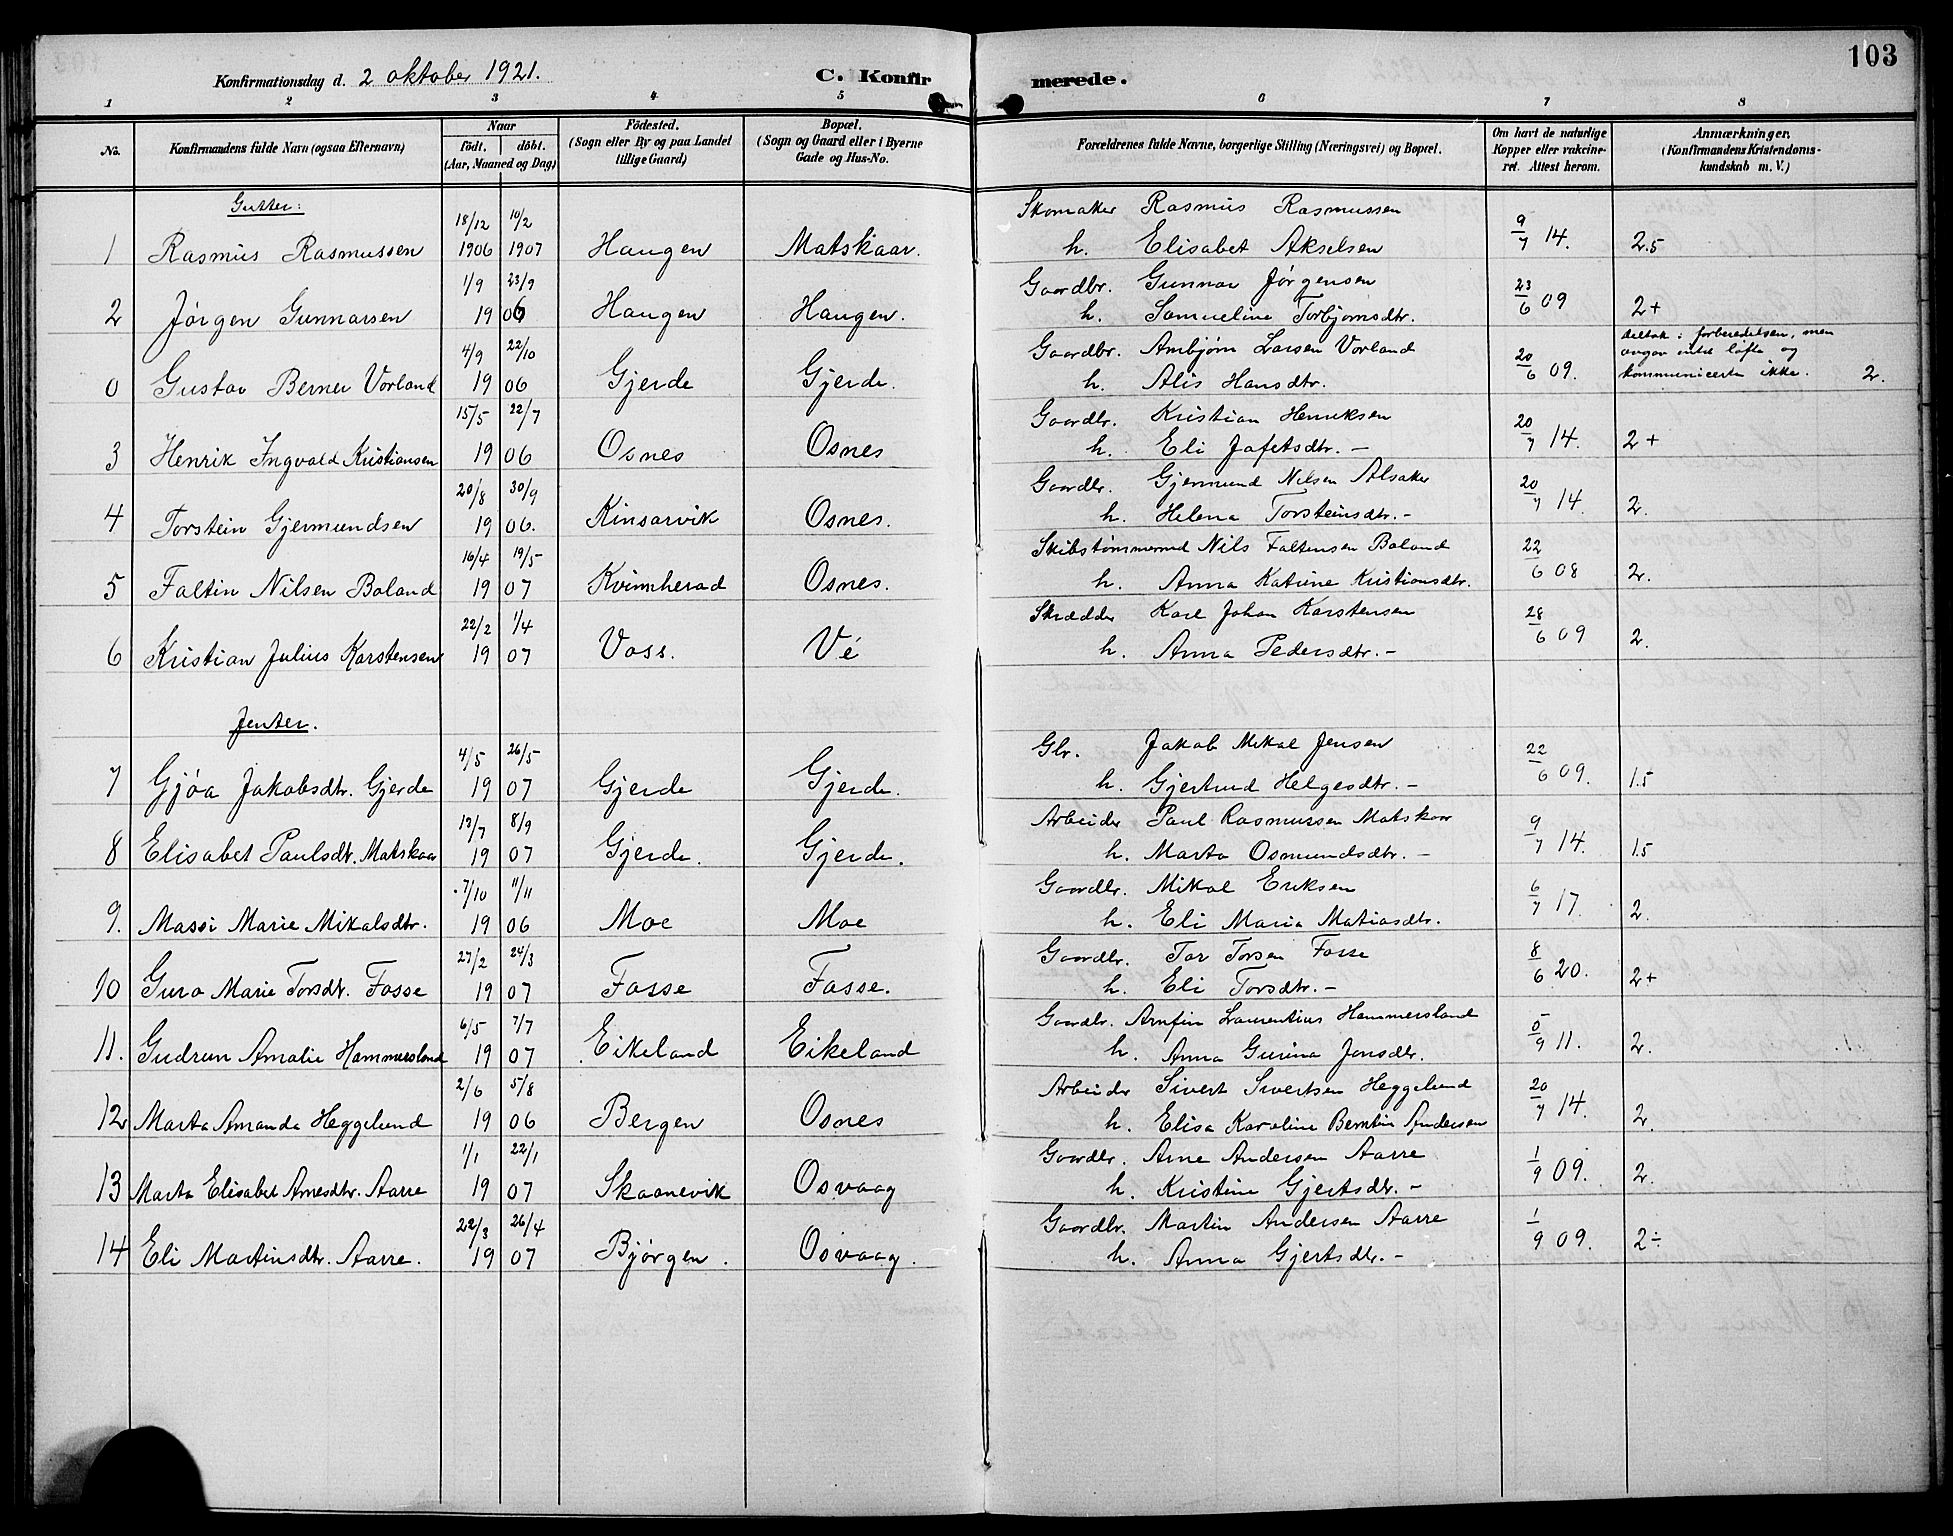 103
Konfirmationsdag d. 2 oktober 1921. C. Konfirmerede.
1 2 3 4 5 6 7 8
No. Konfirmandens fulde Navn (ogsaa Efternavn) Naar født. døbt. (Aar, Maaned og Dag) Fødested. (Sogn eller By og paa Landet tillige Gaard) Bopæl. (Sogn og Gaard eller i Byerne Gade og Hus-No. Forældrenes fulde Navne, borgerlige Stilling (Næringsvei) og Bopæl. Om havt de naturlige Kopper eller vakcineret. Attest herom. Anmærkninger. (Konfirmandens Kristendomskundskab m. V.)
Gutter:
18/12 10/2 Skomaker Rasmus Rasmussen
1 Rasmus Rasmussen 1906 1907 Haugen Matskaar. h. Elisabet Akselsen 9/7 14. 2.5
1/9 23/9 Gaardbr. Gunnar Jørgensen
2 Jørgen Gunnarsen 19 06 Haugen Haugen. h. Samueline Torbjørnsdtr. 23/6 09 2+
4/9 22/10 Gaardbr. Arnbjørn Larsen Vorland deltok i forberedelsen, men avgav intet løfte og
0 Gustav Berner Vorland 19 06 Gjerde Gjerde. h. Alis Hansdtr. 20/6 09. kommunicerte ikke. 2.
15/5 22/7 Gaardbr. Kristian Henriksen
3 Henrik Ingvald Kristiansen 19 06 Osnes Osnes h. Eli Jafetsdtr. – 20/7 14. 2+
20/8 30/9 Gaardbr. Gjermund Nilsen Alsaker
4 Torstein Gjermundsen 19 06. Kinsarvik Osnes. h. Helena Torsteinsdtr. – 20/7 14. 2.
16/4 19/5 Skibstømmermd Nils Faltensen Boland
5 Faltin Nilsen Boland 19 07 Kvinnherad Osnes. h. Anna Katrine Kristiansdtr. 22/6 08 2.
22/2 1/4 Skrædder Karl Johan Karstensen
6 Kristian Julius Karstensen 19 07 Voss. Vé h. Anna Pedersdtr. – 28/6 09 2.
Jenter.
4/5 26/5 Gbr. Jakob Mikal Jensen
7 Gjøa Jakobsdtr. Gjerde 19 07 Gjerde Gjerde. h. Gjertrud Helgesdtr. – 22/6 09. 1.5
13/7 8/9 Arbeider Paul Rasmussen Matskaar
8 Elisabet Paulsdt. Matskaar 19 07 Gjerde. Gjerde. h. Marta Osmundsdtr. – 9/7 14. 1.5
7/10 11/11 Gaardbr. Mikal Eriksen
9. Massi Marie Mikalsdtr. 19 06 Moe Moe h. Eli Maria Matiasdtr. 6/7 17. 2.
27/2 24/3 Gaardbr. Tor Torsen Fosse
10 Guro Marie Torsdt. Fosse 19 07 Fosse Fosse. h. Eli Torsdtr. – 8/6 20. 2+
6/5 7/7 Gaardbr. Arnfin Laurentius Hammersland
11. Gudrun Amalie Hammersland 19 07 Eikeland Eikeland h. Anna Gurina Jonsdtr. 5/9 11. 2.
2/6 5/8 Arbeider Sivert Sivertsen Heggelund
12 Marta Amanda Heggelund 19 06 Bergen Osnes h. Elisa Karoline Berntin Andersen 20/7 14. 2.
1/1 22/1 Gaardbr. Arne Andersen Aarre
13 Marta Elisabet Arnesdtr. Aarre 19 07 Skaanevik Osvaag h. Kristine Gjertsdtr. – 1/9 09. 2.
22/3 26/4 Gaardbr. Martin Andersen Aarre
14 Eli Martinsdtr. Aarre. 19 07 Bjørgen. Osvaag. h. Anna Gjertsdtr. – 1/9 09. 2÷